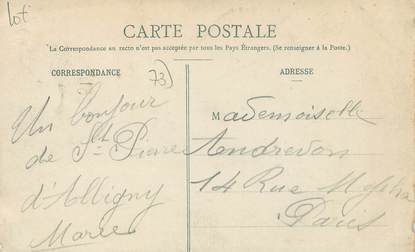 Lot
CARTE POSTALE
La Correspondance au recto n'est pas acceptée par tous les Pays Étrangers. (Se renseigner à la Poste.)
CORRESPONDANCE
73
Un bonjour
de St Pierre
d'Albigny
Marie
ADRESSE
Mademoiselle
Andrevon
14 Rue
Paris